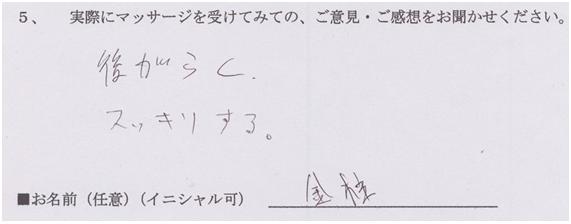 5、 実際にマッサージを受けてみての、ご意見・ご感想をお聞かせください。
後がらく、
スッキリする。
■お名前（任意）（イニシャル可）